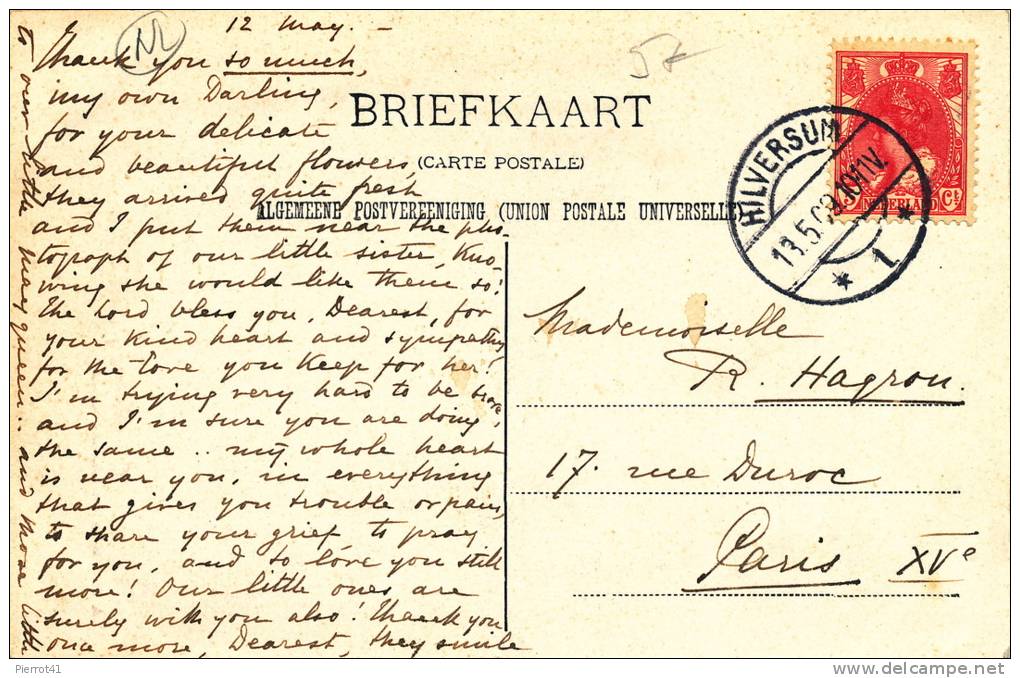 12 May. –
Thank you so much,
my own Darling,
for your delicate
and beautiful flowers,
they arrived quite fresh
and I put them near the pho-
tograph of our little sister, kno-
wing she would like them so!
The Lord bless you, Dearest, for
your kind heart and sympathy
for the love you keep for her!
I'm trying very hard to be brave
and I'm sure you are doing
the same .. my whole heart
is near you, in everything
that gives you trouble or pain,
to share your grief to pray
for you, and to love you still
more! Our little ones are
surely with you also! Thank you
once more, Dearest, they smile
to our little May queen .. and those little
NL
5
BRIEFKAART
(CARTE POSTALE)
ALGEMEENE POSTVEREENIGING (UNION POSTALE UNIVERSELLE)
HILVERSUM
13.5.09.10/11V.
* 1 *
NEDERLAND
Ct
Mademoiselle
R. Hagron.
17. rue Duroc
Paris XVe
Pierrot41
delcampe.net